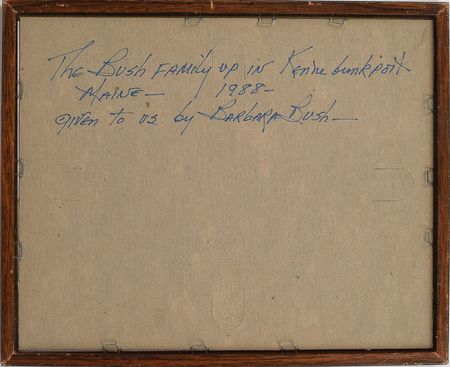 The Bush FAMILY up in Kennebunkport
MAINE — 1988 —
given to us by BARBARA Bush —